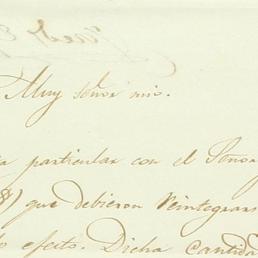 Muy Señor mio.
particular con el Señor
8) que debieron reintegrars
efecto. Dicha cantida